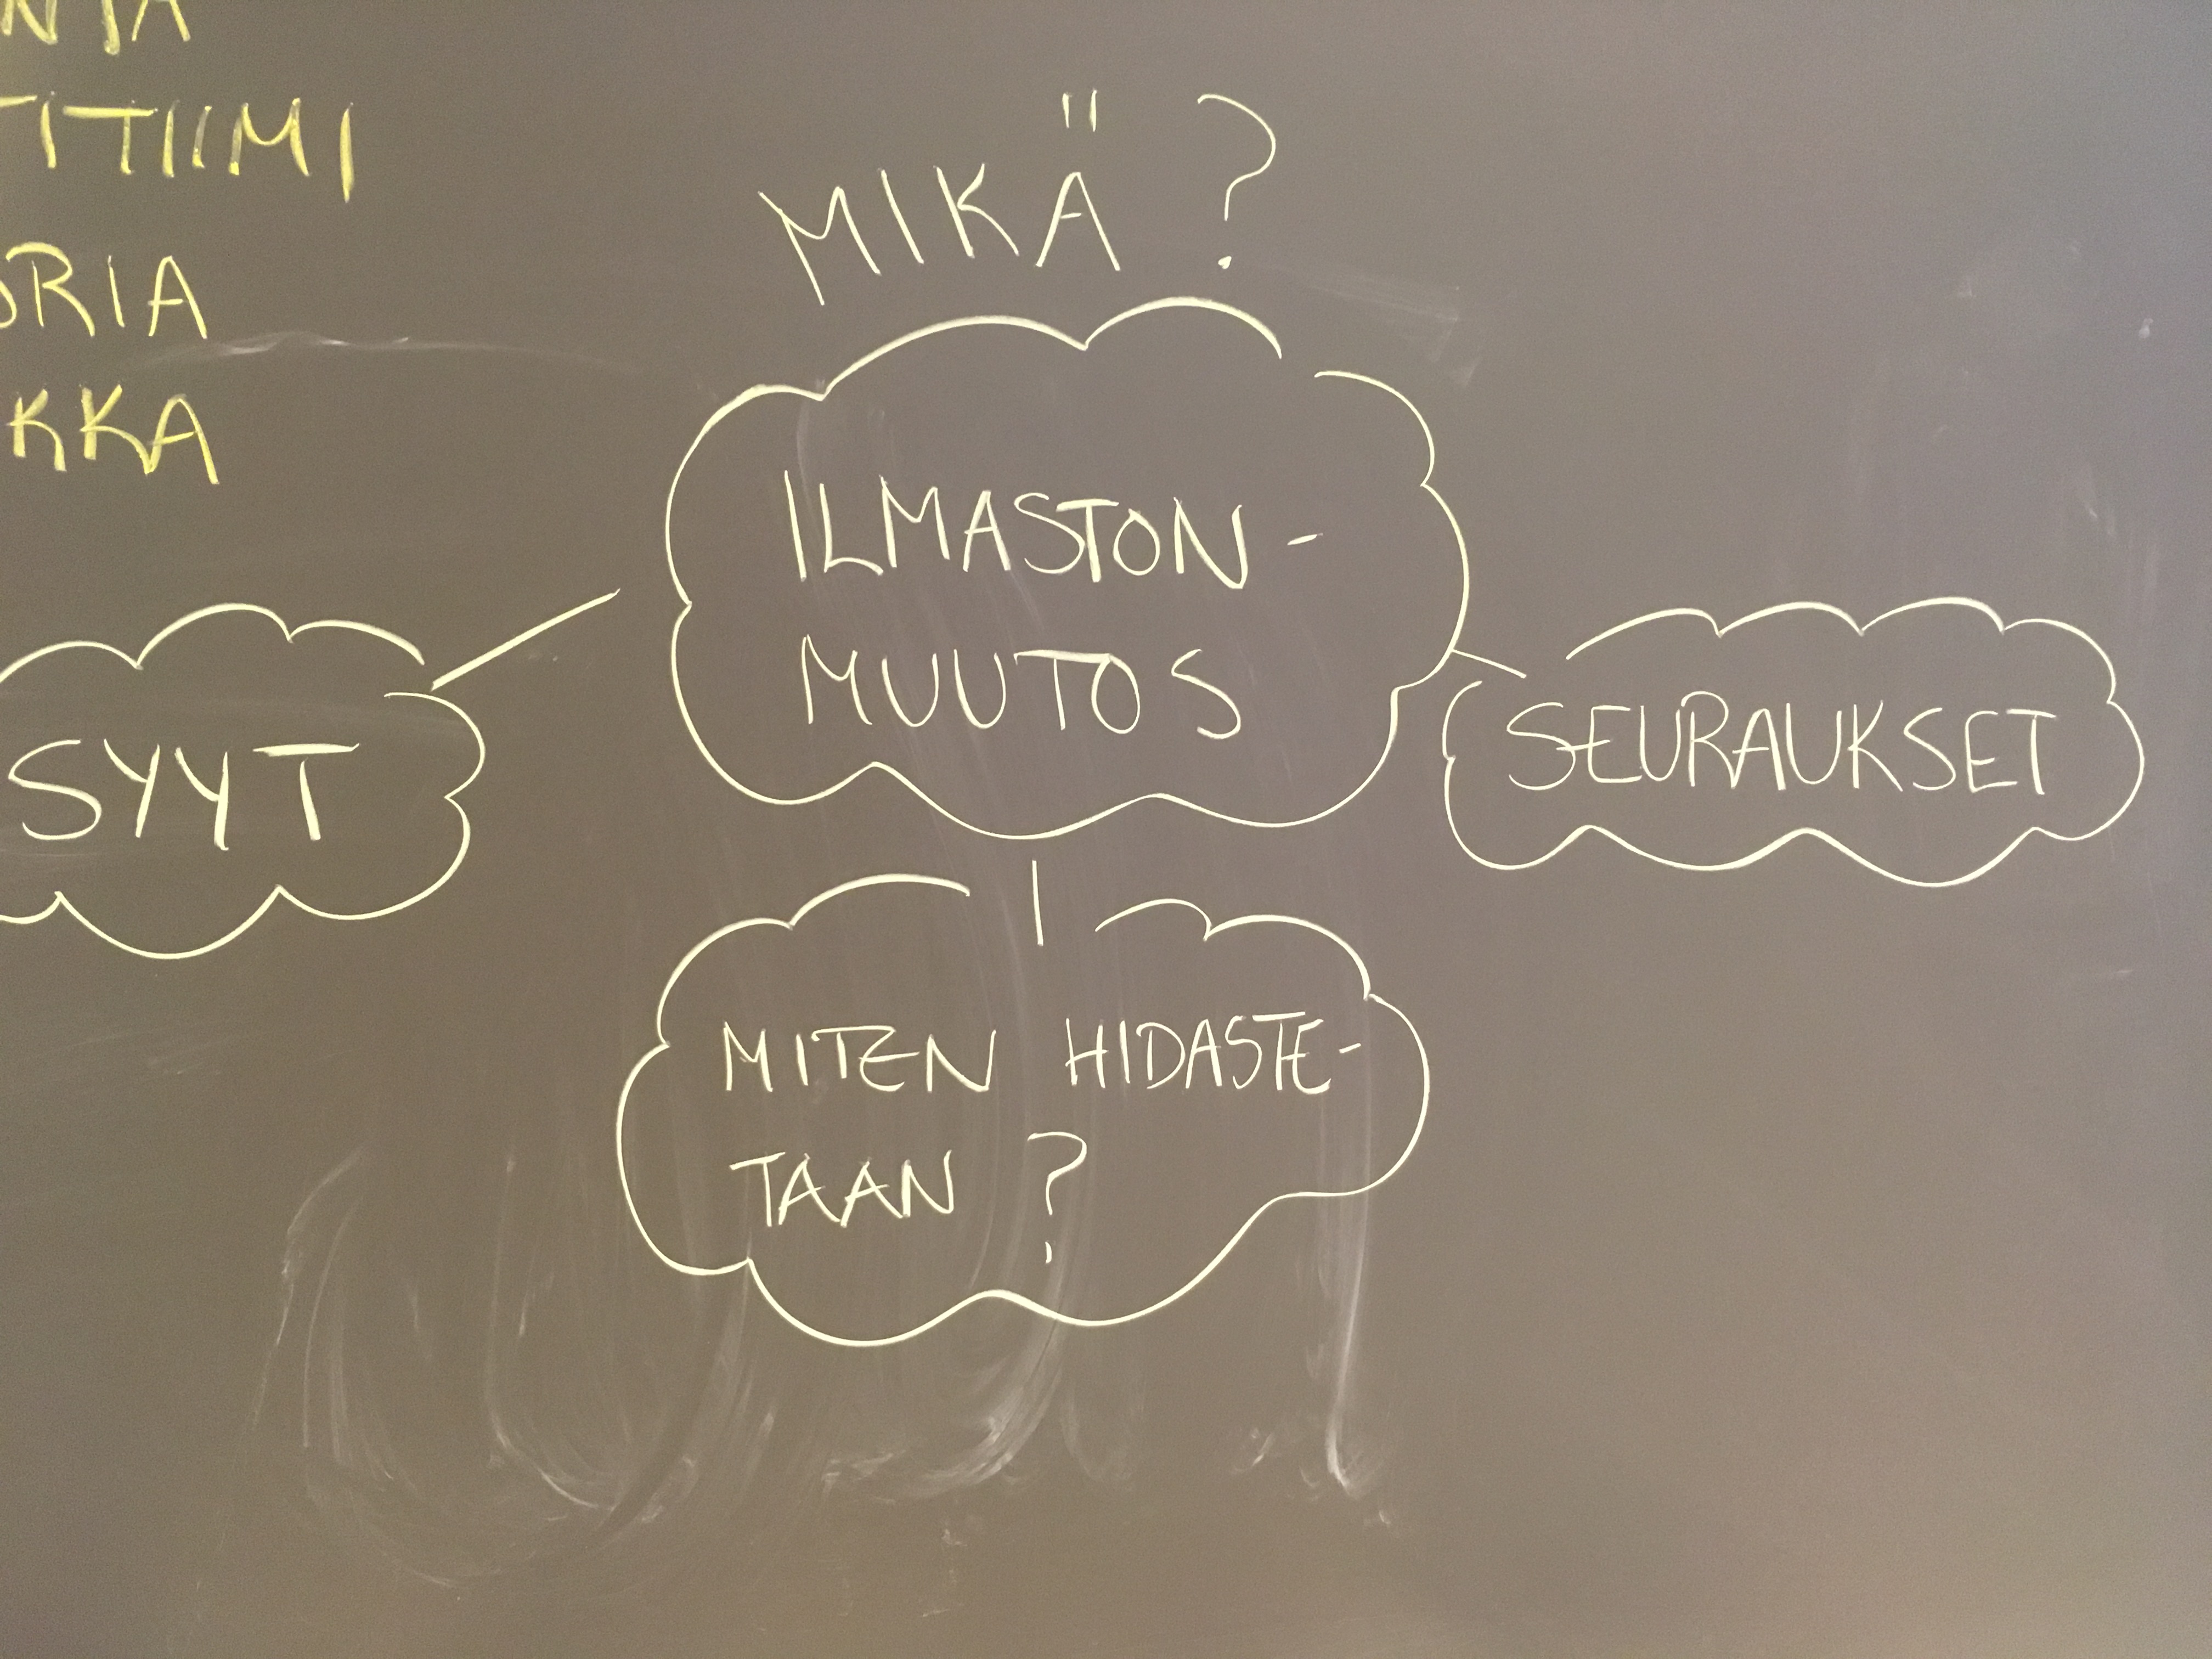 TITIIMI
ORIA
KKA
MIKÄ ?
ILMASTON-
MUUTOS
SYYT
SEURAUKSET
MITEN HIDASTE-
TAAN ?